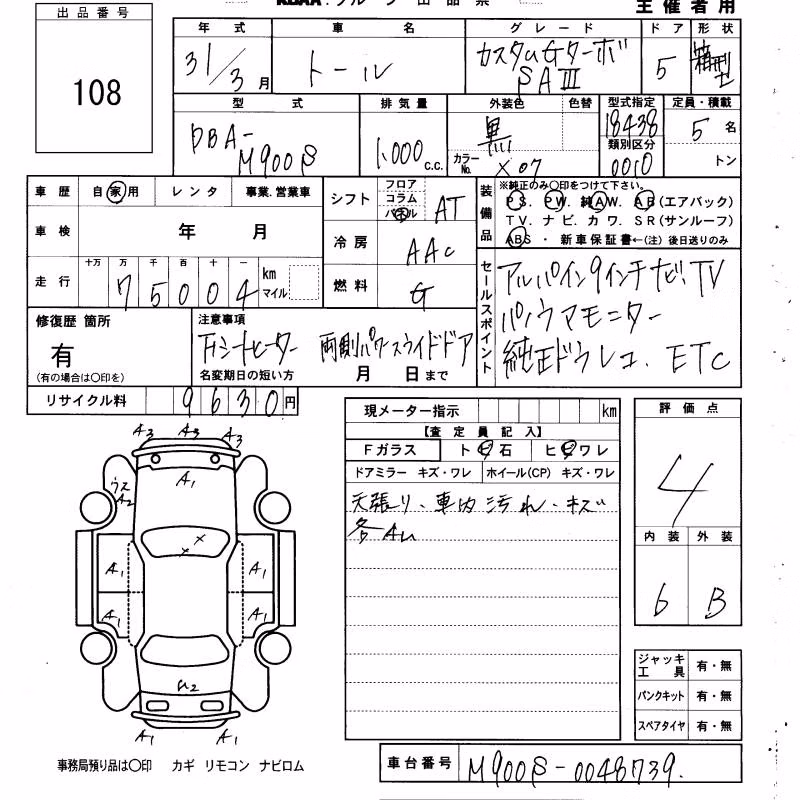 出品番号
108
主催者用
年式 車名 グレード ドア 形状
31/3月 トール カスタムGターボ SAⅢ 5 箱型
型式 排気量 外装色 色替 型式指定 定員・積載
DBA-M900S 1.000 C.C. 黒 カラーNo. X07 18438 5名
類別区分 0010 トン
車歴 自家用 レンタ 事業.営業車
シフト フロア コラム パネル AT
装備品 ※純正のみ〇印をつけて下さい。
PS. PW. 純AW. AB(エアバック)
TV. ナビ. カワ. SR(サンルーフ)
ABS ・ 新車保証書←(注) 後日送りのみ
車検 年 月
冷房 AAC
走行 十万 万 千 百 十 一 km マイル
75004
燃料 G
セールスポイント
アルパイン9インチナビ.TV
パノラマモニター
純正ドラレコ. ETC
修復歴 箇所
有
(有の場合は〇印を)
注意事項
Fシートヒーター 両側パワースライドドア
名変期日の短い方 月 日まで
リサイクル料 9630円
現メーター指示 km
【査定員記入】
Fガラス ト ビ 石 ヒ ビ ワレ
ドアミラー キズ・ワレ ホイール(CP) キズ・ワレ
天張り、車内汚れ・キズ
各AU
評価点
4
内装 外装
6 B
A3 A3 A3
ウス A2
A1
X
X
A1 A1
A1 A1
U2
A1 A1
ジャッキ工具 有・無
パンクキット 有・無
スペアタイヤ 有・無
事務局預り品は〇印 カギ リモコン ナビロム
車台番号 M900S-0048739.